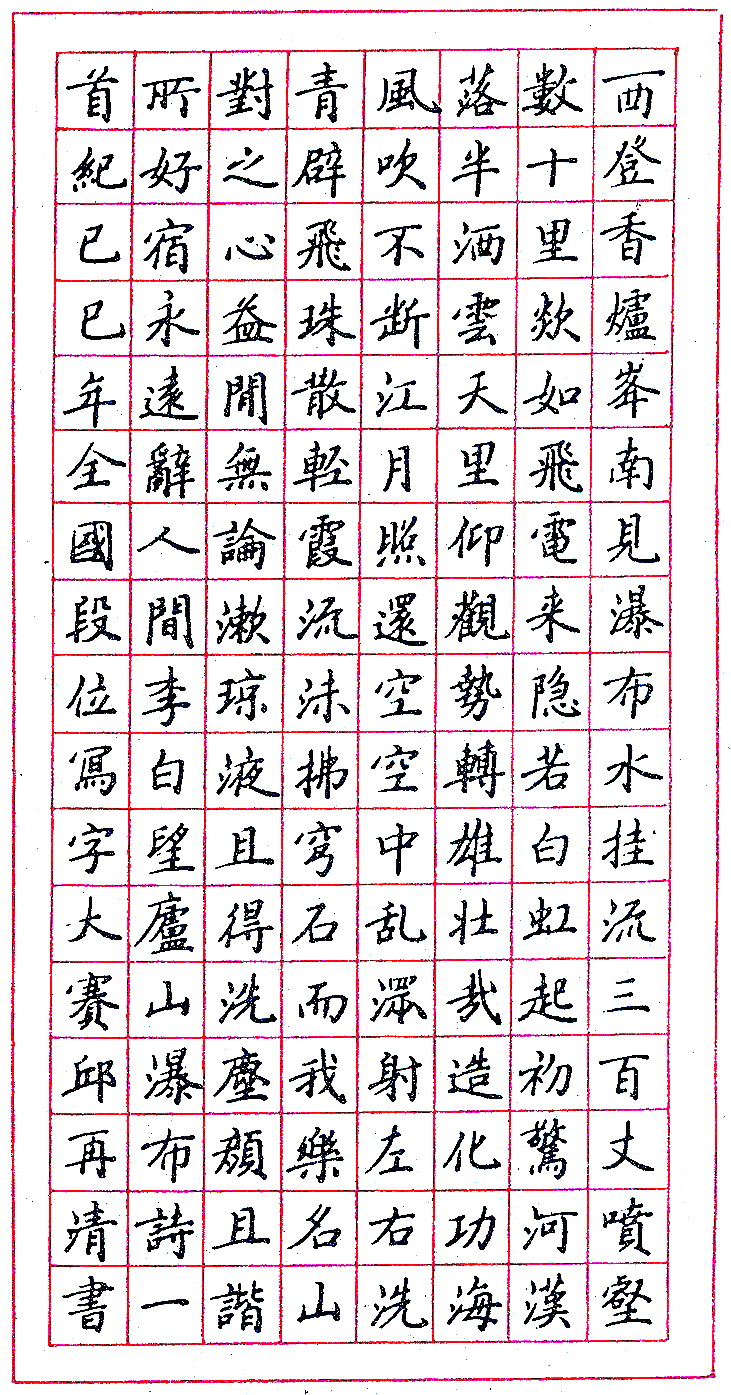 西登香爐峯南見瀑布水挂流三百丈噴壑
數十里欻如飛電来隐若白虹起初驚河漢
落半洒雲天里仰觀勢轉雄壯哉造化功海
風吹不断江月照還空空中乱潀射左右洗
青辟飛珠散輕霞流沫拂穹石而我樂名山
對之心益閒無論漱琼液且得洗塵顔且諧
所好宿永遠辭人間李白望廬山瀑布詩一
首紀已巳年全國段位寫字大賽邱再清書